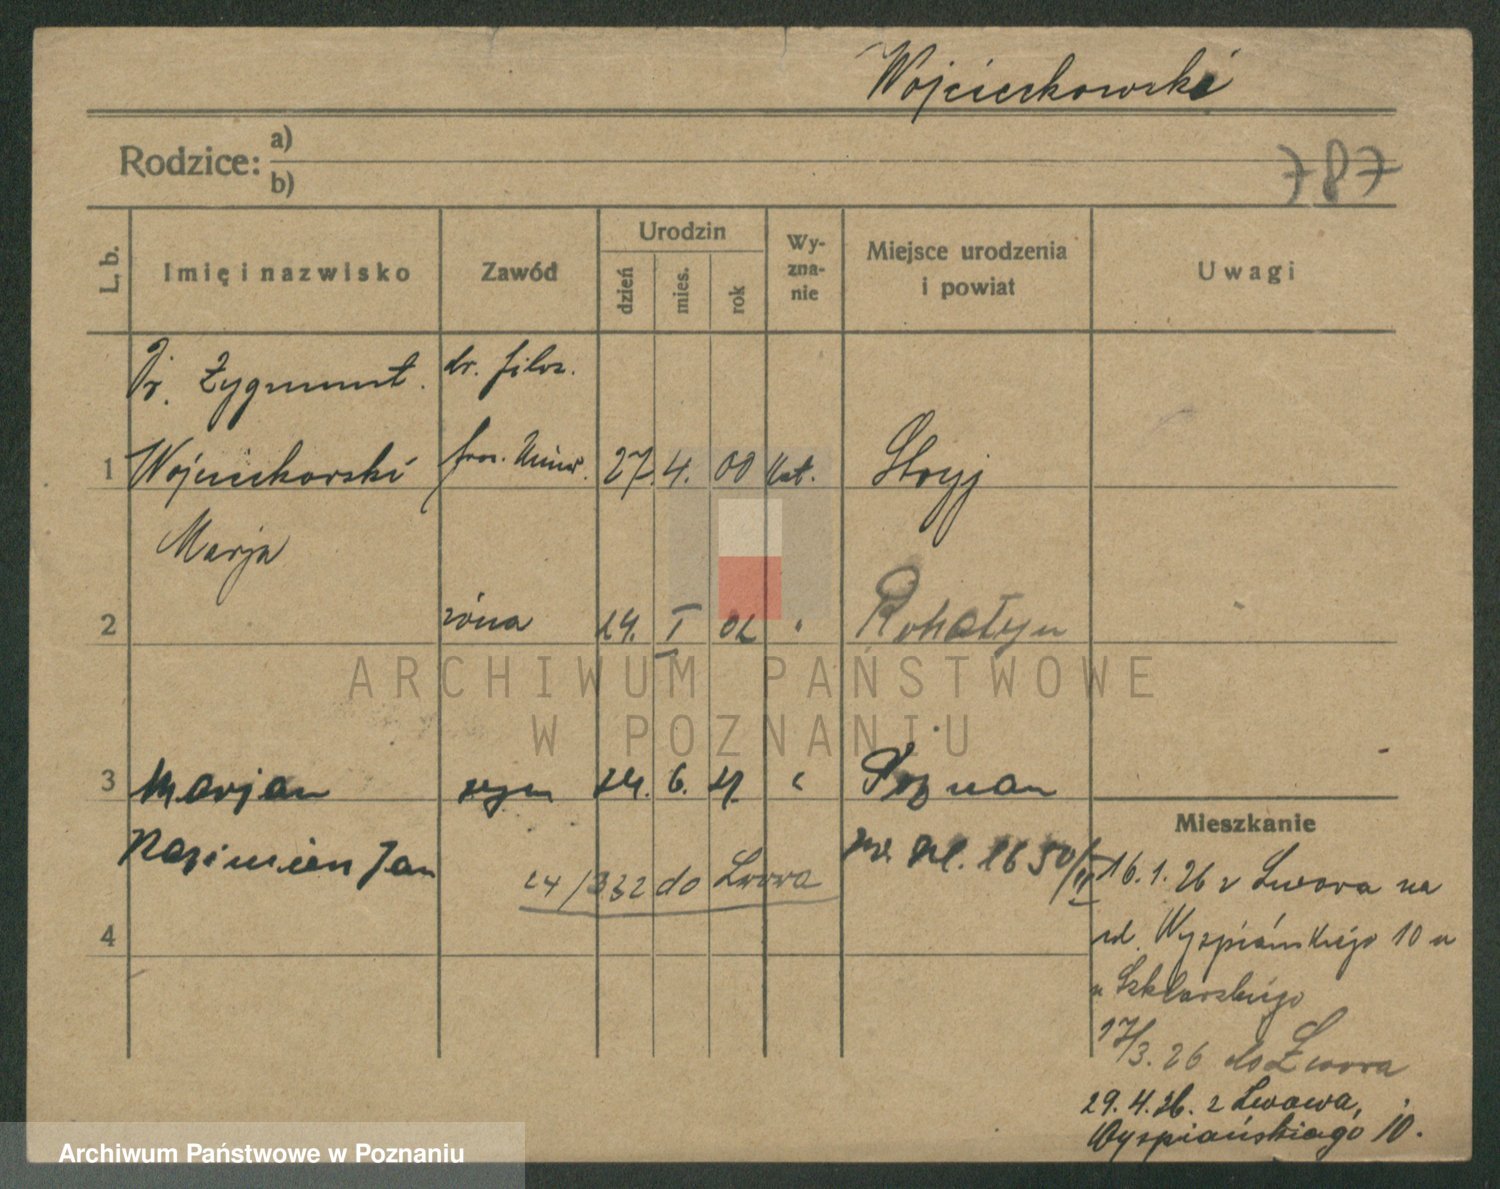 Wojciechowski
Rodzice: a)
b)
787
L. b.
Imię i nazwisko
Zawód
Urodzin
dzień
mies.
rok
Wy-
zna-
nie
Miejsce urodzenia
i powiat
Uwagi
Dr. Zygmunt dr. filoz.
1 Wojciechowski prof. Uniw. 27. 4. 00 kat. Stryj
Marja
2 żona 24. I 02 " Rohatyn
ARCHIWUM PAŃSTWOWE
W POZNANIU
3 Marjan syn 24. 6. " Poznań
Kazimierz Jan 1650/II
24/3.32 do Lwowa
4
Mieszkanie
16.1.26 z Lwowa na
ul. Wyspiańskiego 10 u
Szklarskiego
17/3. 26 do Lwowa
29.4.26. z Lwowa,
Wyspiańskiego 10.
Archiwum Państwowe w Poznaniu